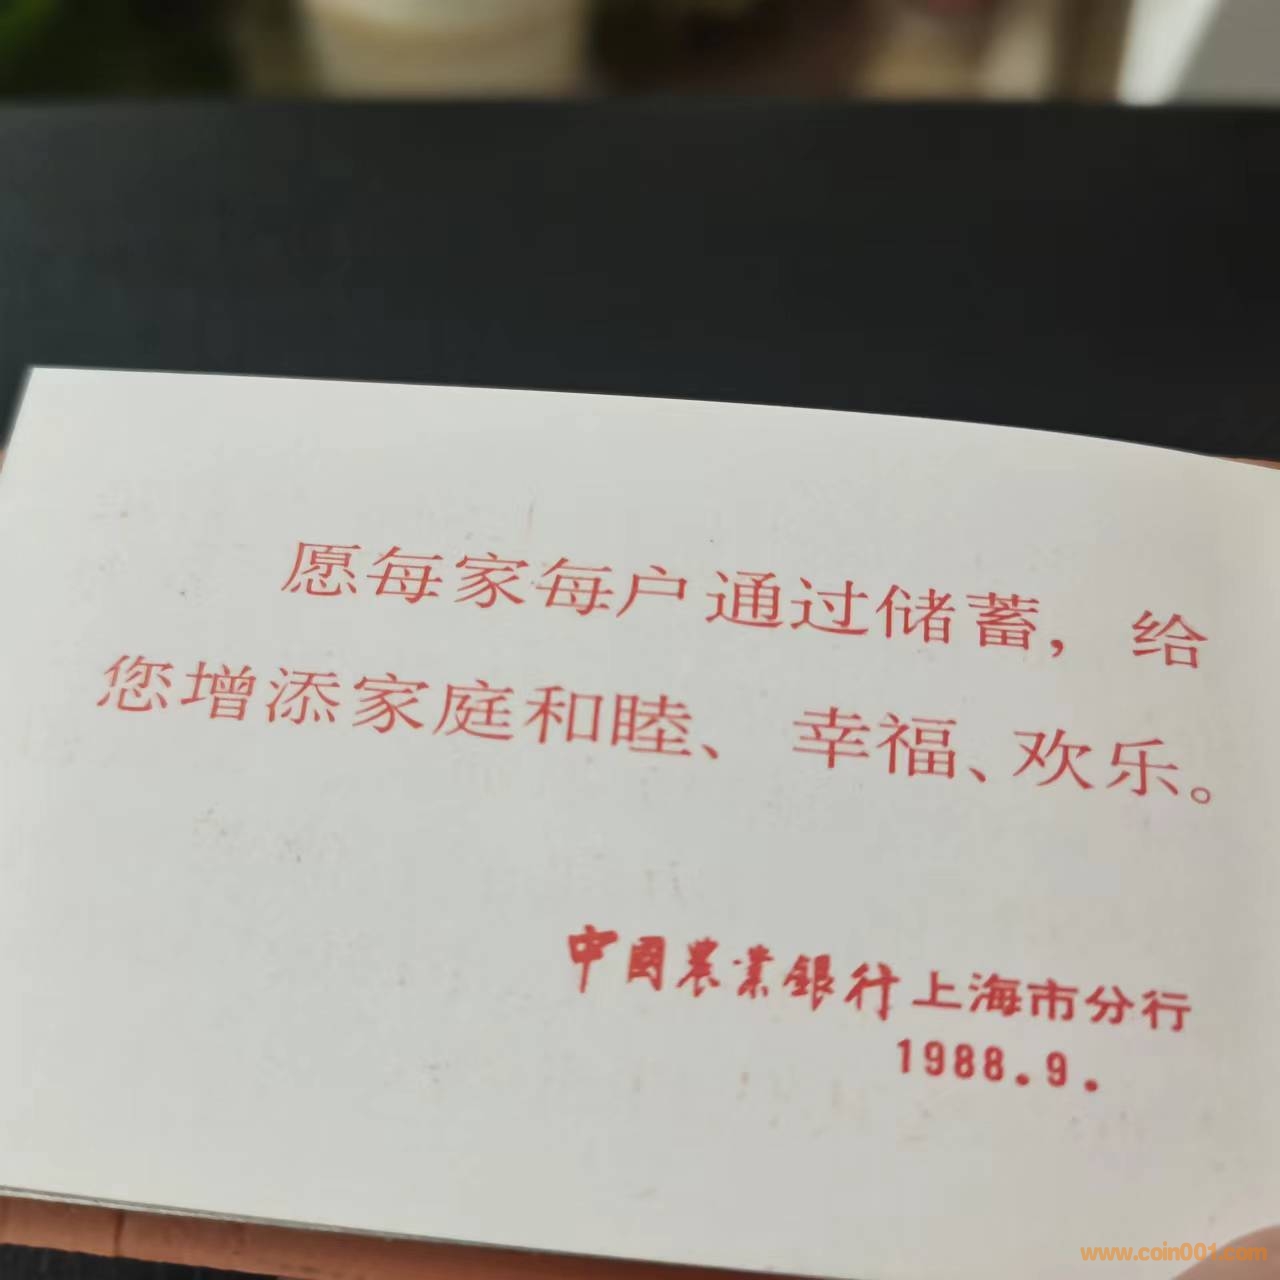 愿每家每户通过储蓄，给
您增添家庭和睦、幸福、欢乐。
中國農業銀行上海市分行
1988.9.
www.coin001.com